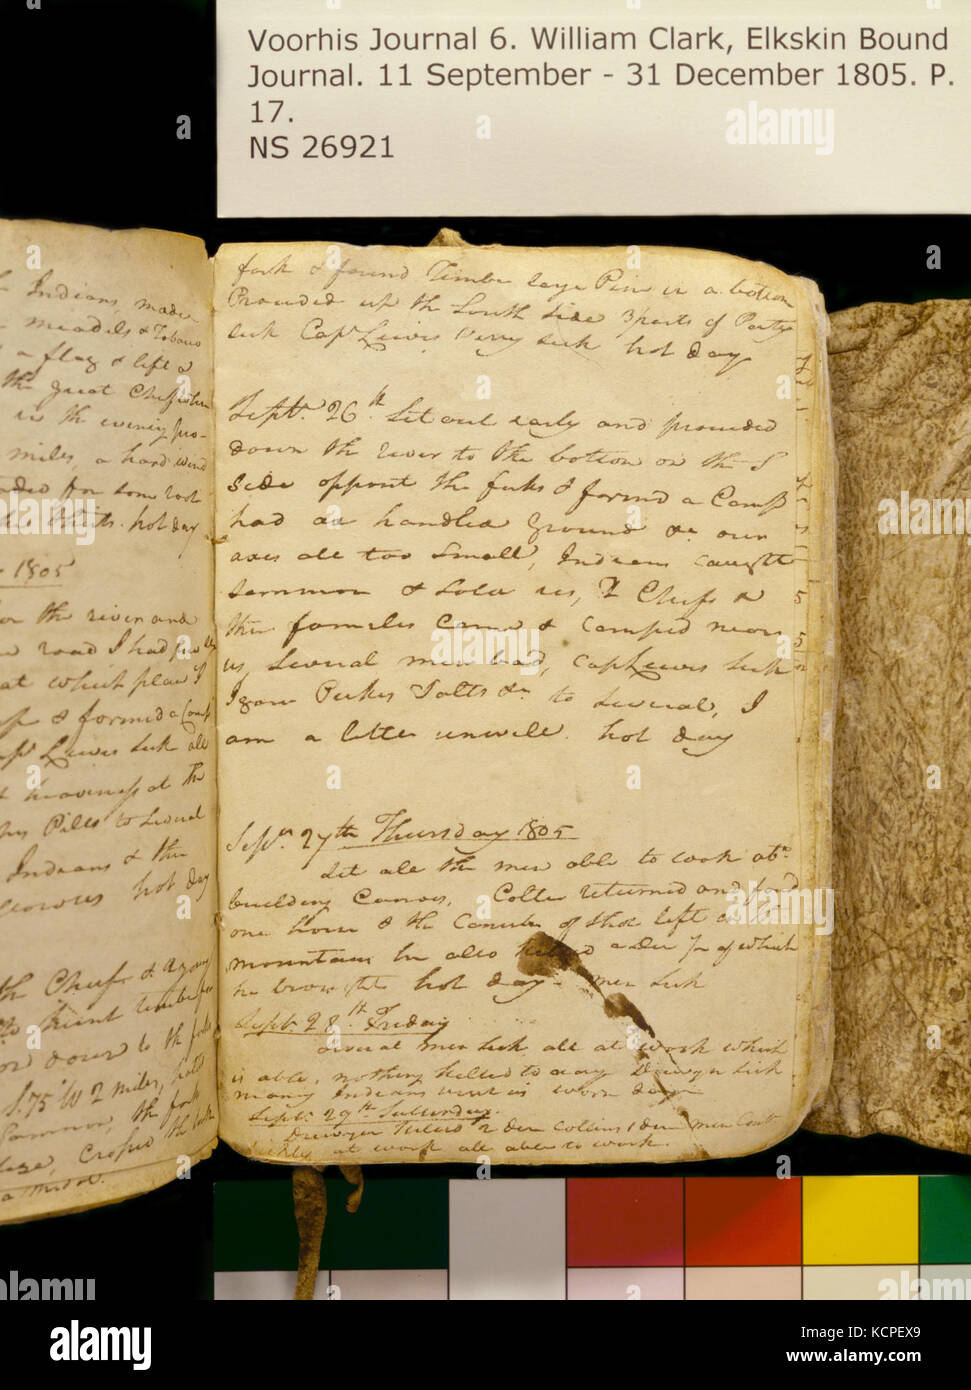 Voorhis Journal 6. William Clark, Elkskin Bound
Journal. 11 September - 31 December 1805. P.
17.
NS 26921
fork & found Timber large Pine in a bottom
Proceeded up the South Side 3 parts of Party
sick Capt Lewis verry sick hot day
Septr. 26th Set out early and proceeded
down the river to the bottom on the S
Side opposit the forks & formed a Camp
had ax handled ground &c. our
axes all too Small, Indians caught
Sammon & Sold us, 2 Chiefs &
thir families Came & camped near
us, Several men bad, Capt Lewis Sick
I gave Pukes Salts &c. to Several, I
am a little unwell. hot day
Septr. 27th Thursday 1805
Set all the men able to work abt.
building Canoes, Colter returned and found
one horse & the Canister of Shot left in the
mountains he also killed a Deer ½ of which
he brought hot day - men Sick
Septr. 28th Friday
Several men Sick all at work which
is able, nothing killed to day Drewyer Sick
many Indians visit us worm day
Septr. 29th Satturday.
Drewyer killed 2 deer Collins 1 der men Conti
at work all able to work.
Indians made
meadels & Tobaco
a flag & left a
the great Chief when
in the evening pro-
miles, a hard wind
for some root
hot day
1805
the river and
road I had
at which place I
& formed a Camp
Lewis Sick all
heaviness at the
Pills to Several
Indians &
hot day
the Chiefs & 2 young
to hunt timber for
down to the forks
S. 75° W 2 miles,
Sammon, the fork
Crossed the
alamy
Image ID: KCPEX9
www.alamy.com